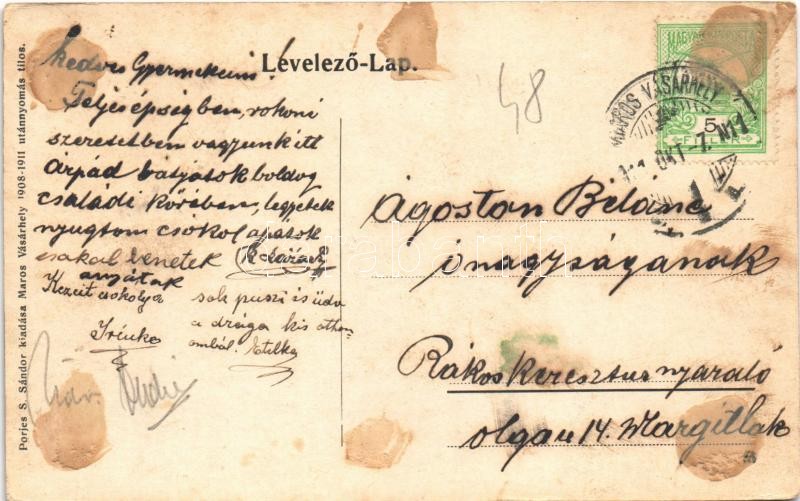 Levelező-Lap.
Porjes S. Sándor kiadása Maros Vásárhely 1908-1911 utánnyomás tilos.
kedves Gyermekeim!
Teljes épségben, rokoni
szeretetben vagyunk itt
Árpád bátyátok boldog
családi körében, legyetek
nyugton csókol apátok
anyátok
Kezeit csókolja
Irénke
sok puszi és üdv
a drága kis ottho
omból. Etelka
Üdv.
48
MAGYAR KIR. POSTA
5
FILLÉR
MAROS VÁSÁRHELY
OKT-7
Ágoston Béláné
őnagyságának
Rákoskeresztur nyaraló
olga u 14. Margitlak